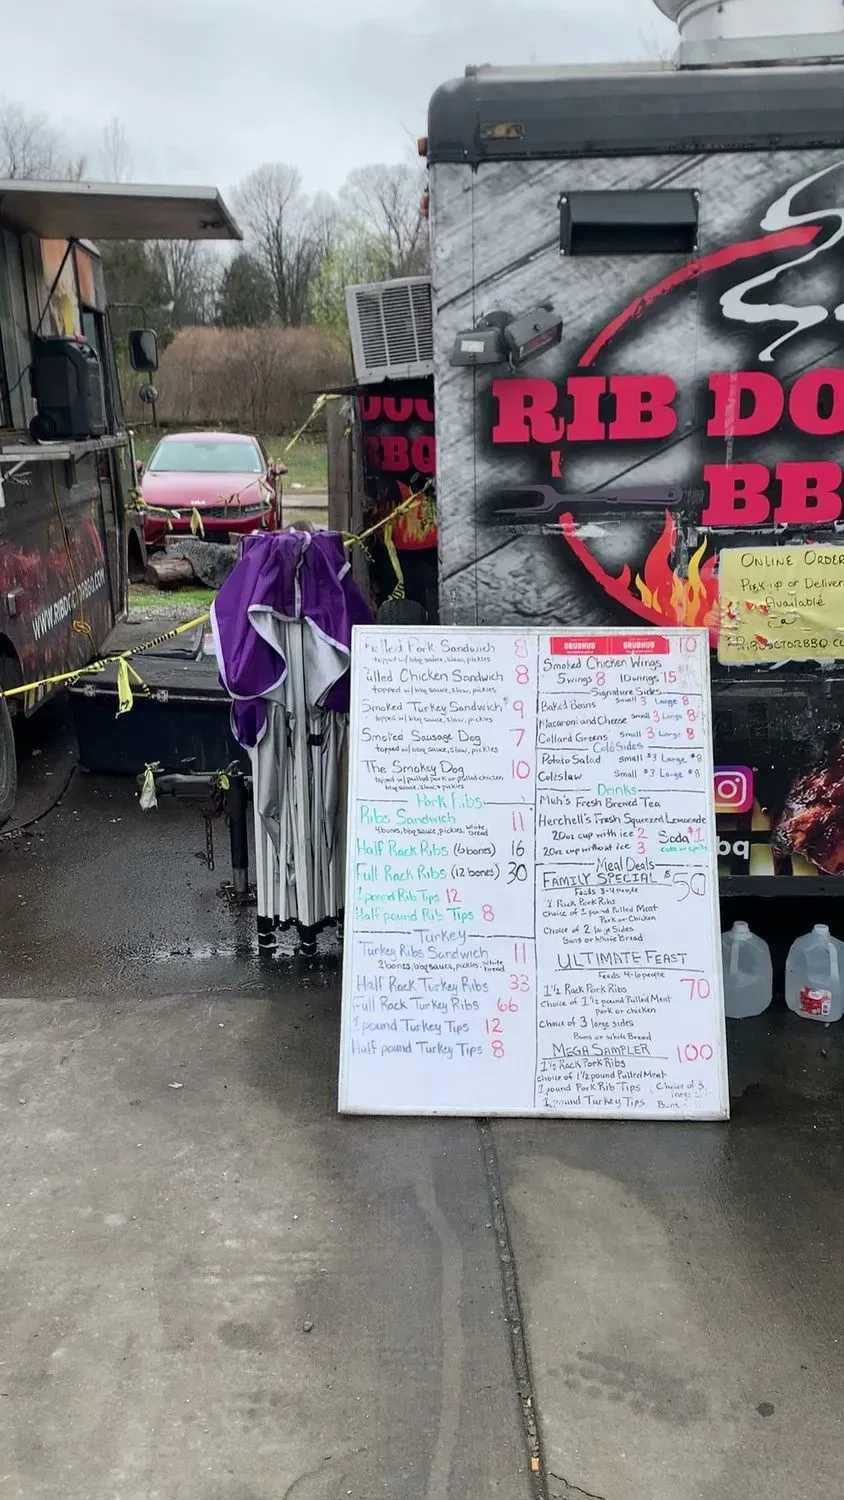 RIB DO
BBQ
DOC
BBQ
WWW.RIBDOCTORBBQ.COM
ONLINE ORDER
Pick-up or Deliver
Available
RIBDOCTORBBQ.CO
bq
Pulled Pork Sandwich 8
topped w/ bbq sauce, slaw, pickles
Pulled Chicken Sandwich 8
topped w/ bbq sauce, slaw, pickles
Smoked Turkey Sandwich 9
topped w/ bbq sauce, slaw, pickles
Smoked Sausage Dog 7
topped w/ bbq sauce, slaw, pickles
The Smokey Dog 10
topped w/ pulled pork or pulled chicken
bbq sauce, slaw, & pickles
Pork Ribs
Ribs Sandwich 11
4 bones, bbq sauce, pickles, white bread
Half Rack Ribs (6 bones) 16
Full Rack Ribs (12 bones) 30
1 pound Rib Tips 12
Half pound Rib Tips 8
Turkey
Turkey Ribs Sandwich 11
2 bones, bbq sauce, pickles, white bread
Half Rack Turkey Ribs 33
Full Rack Turkey Ribs 66
1 pound Turkey Tips 12
Half pound Turkey Tips 8
GRUBHUB GRUBHUB 10
Smoked Chicken Wings
5 wings 8 10 wings 15
Signature Sides
Baked Beans Small 3 Large 8
Macaroni and Cheese Small 3 Large 8
Collard Greens Small 3 Large 8
Cold Sides
Potato Salad Small $3 Large $8
Coleslaw Small $3 Large $8
Drinks
Muh's Fresh Brewed Tea
Herchell's Fresh Squeezed Lemonade
20oz cup with ice 2 Soda $1
20oz cup without ice 3 coke or sprite
Meal Deals
FAMILY SPECIAL $50
Feeds 3-4 people
1 Rack Pork Ribs
Choice of 1 pound Pulled Meat
Pork or Chicken
Choice of 2 large Sides
Buns or White Bread
ULTIMATE FEAST
Feeds 4-6 people
1½ Rack Pork Ribs 70
Choice of 1½ pound Pulled Meat
pork or chicken
Choice of 3 large sides
Buns or White Bread
MEGA SAMPLER 100
1½ Rack Pork Ribs
choice of 1½ pound Pulled Meat
1 pound Pork Rib Tips Choice of 3
1 pound Turkey Tips large